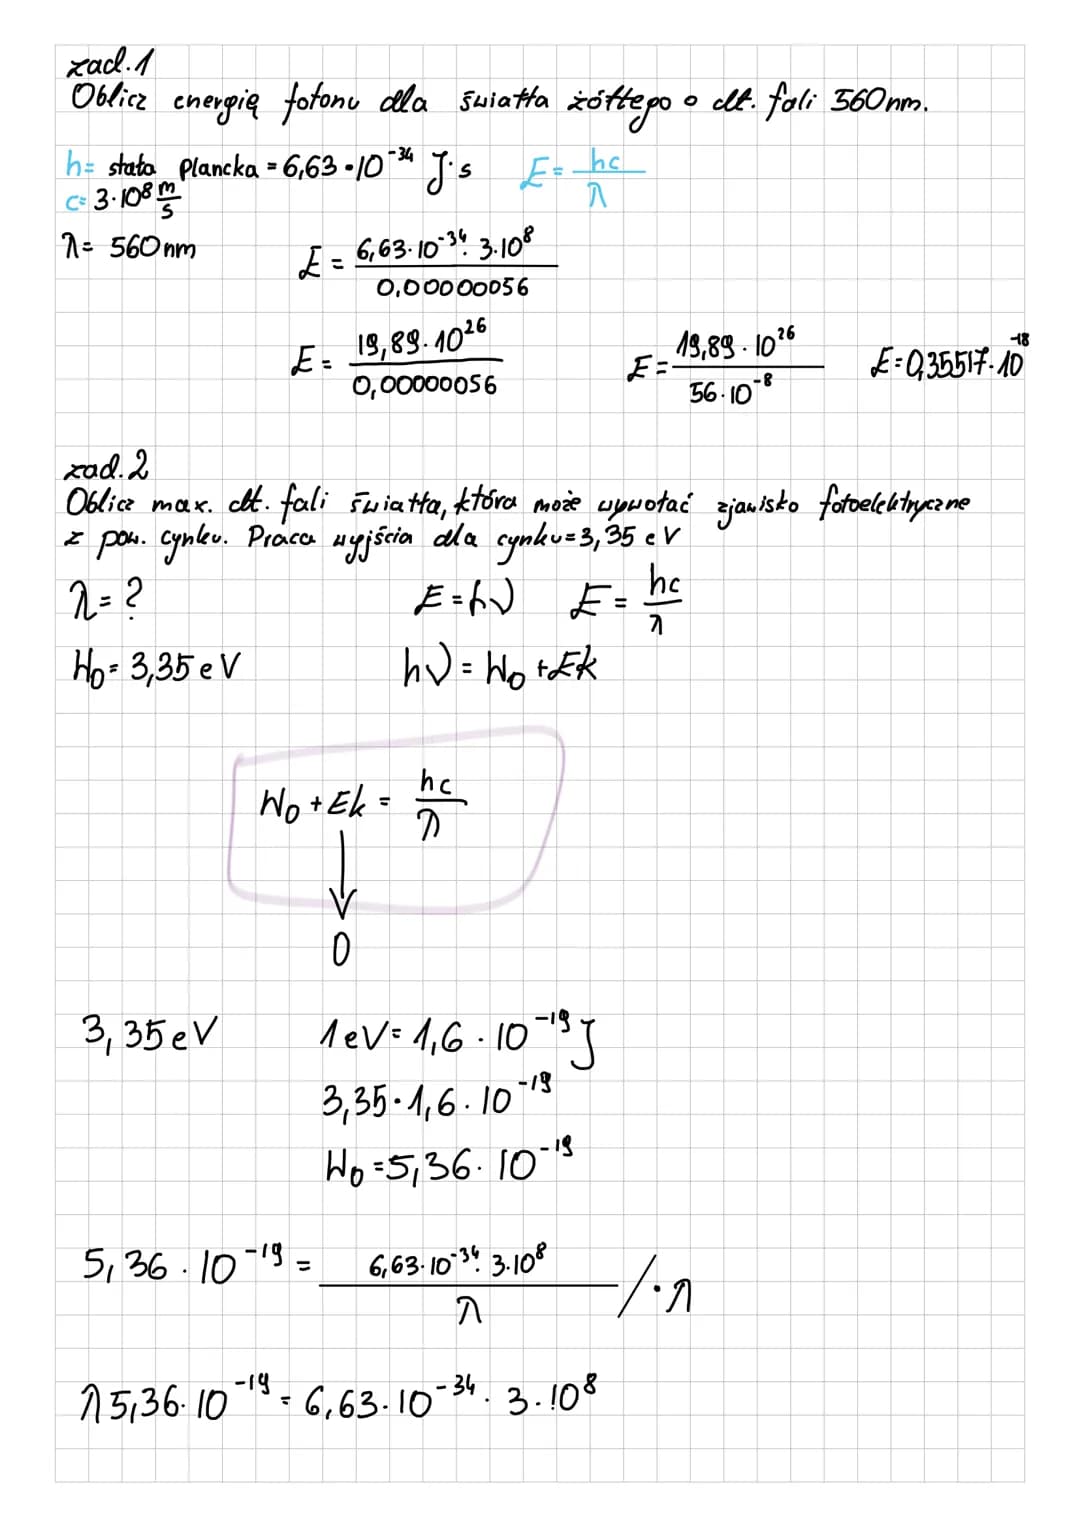 zad.1
Oblicz energię fotonu dla światła żółtego o dł. fali 560nm.
h= stała plancka = 6,63 · 10^-34 J·s E= hc/λ
c= 3·10^8 m/s
λ= 560nm
E = 6,63·10^-34 · 3·10^8 / 0,00000056
E = 19,89·10^26 / 0,00000056 E= 19,89·10^26 / 56·10^-8 E=0,35517·10^-18
zad.2
Oblicz max. dł. fali światła, która może wywołać zjawisko fotoelektryczne
z pow. cynku. Praca wyjścia dla cynku=3,35 eV
λ=? E=hν E = hc/λ
W0= 3,35 eV hν = W0 + Ek
W0 + Ek = hc/λ
↓
0
3,35eV 1eV= 1,6 · 10^-19 J
3,35·1,6·10^-19
W0=5,36·10^-19
5,36·10^-19 = 6,63·10^-34 · 3·10^8 / λ /·λ
λ5,36·10^-19 = 6,63·10^-34 · 3·10^8